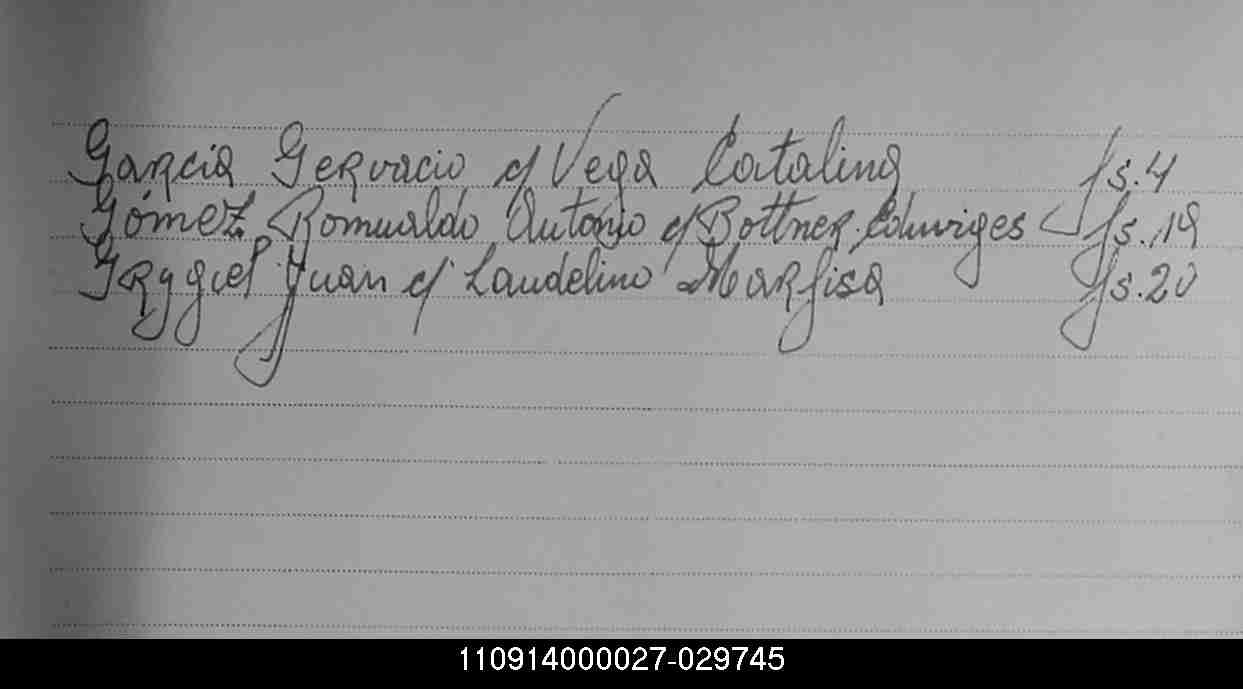 García Gervacio c/ Vega Catalina fs. 4
Gómez Romualdo Antonio c/ Bottner Eduviges fs. 19
Grygiel Juan c/ Laudelino Marfisa fs. 20
110914000027-029745